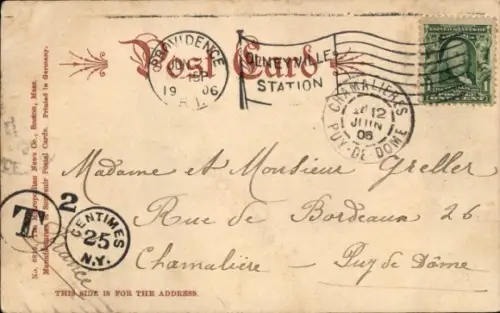 Post Card
PROVIDENCE
JUN
19 06
R.I.
OLNEYVILLE
STATION
CHAMALIERES
12
JUIN
06
PUY-DE-DOME
1 1
Madame et Monsieur Greller
Rue de Bordeaux 26
Chamalière — Puy de Dôme
T
2
CENTIMES
25
N.Y.
France
THIS SIDE IS FOR THE ADDRESS.
Metropolitan News Co., Boston, Mass.
Manufacturers of Souvenir Postal Cards. Printed in Germany.